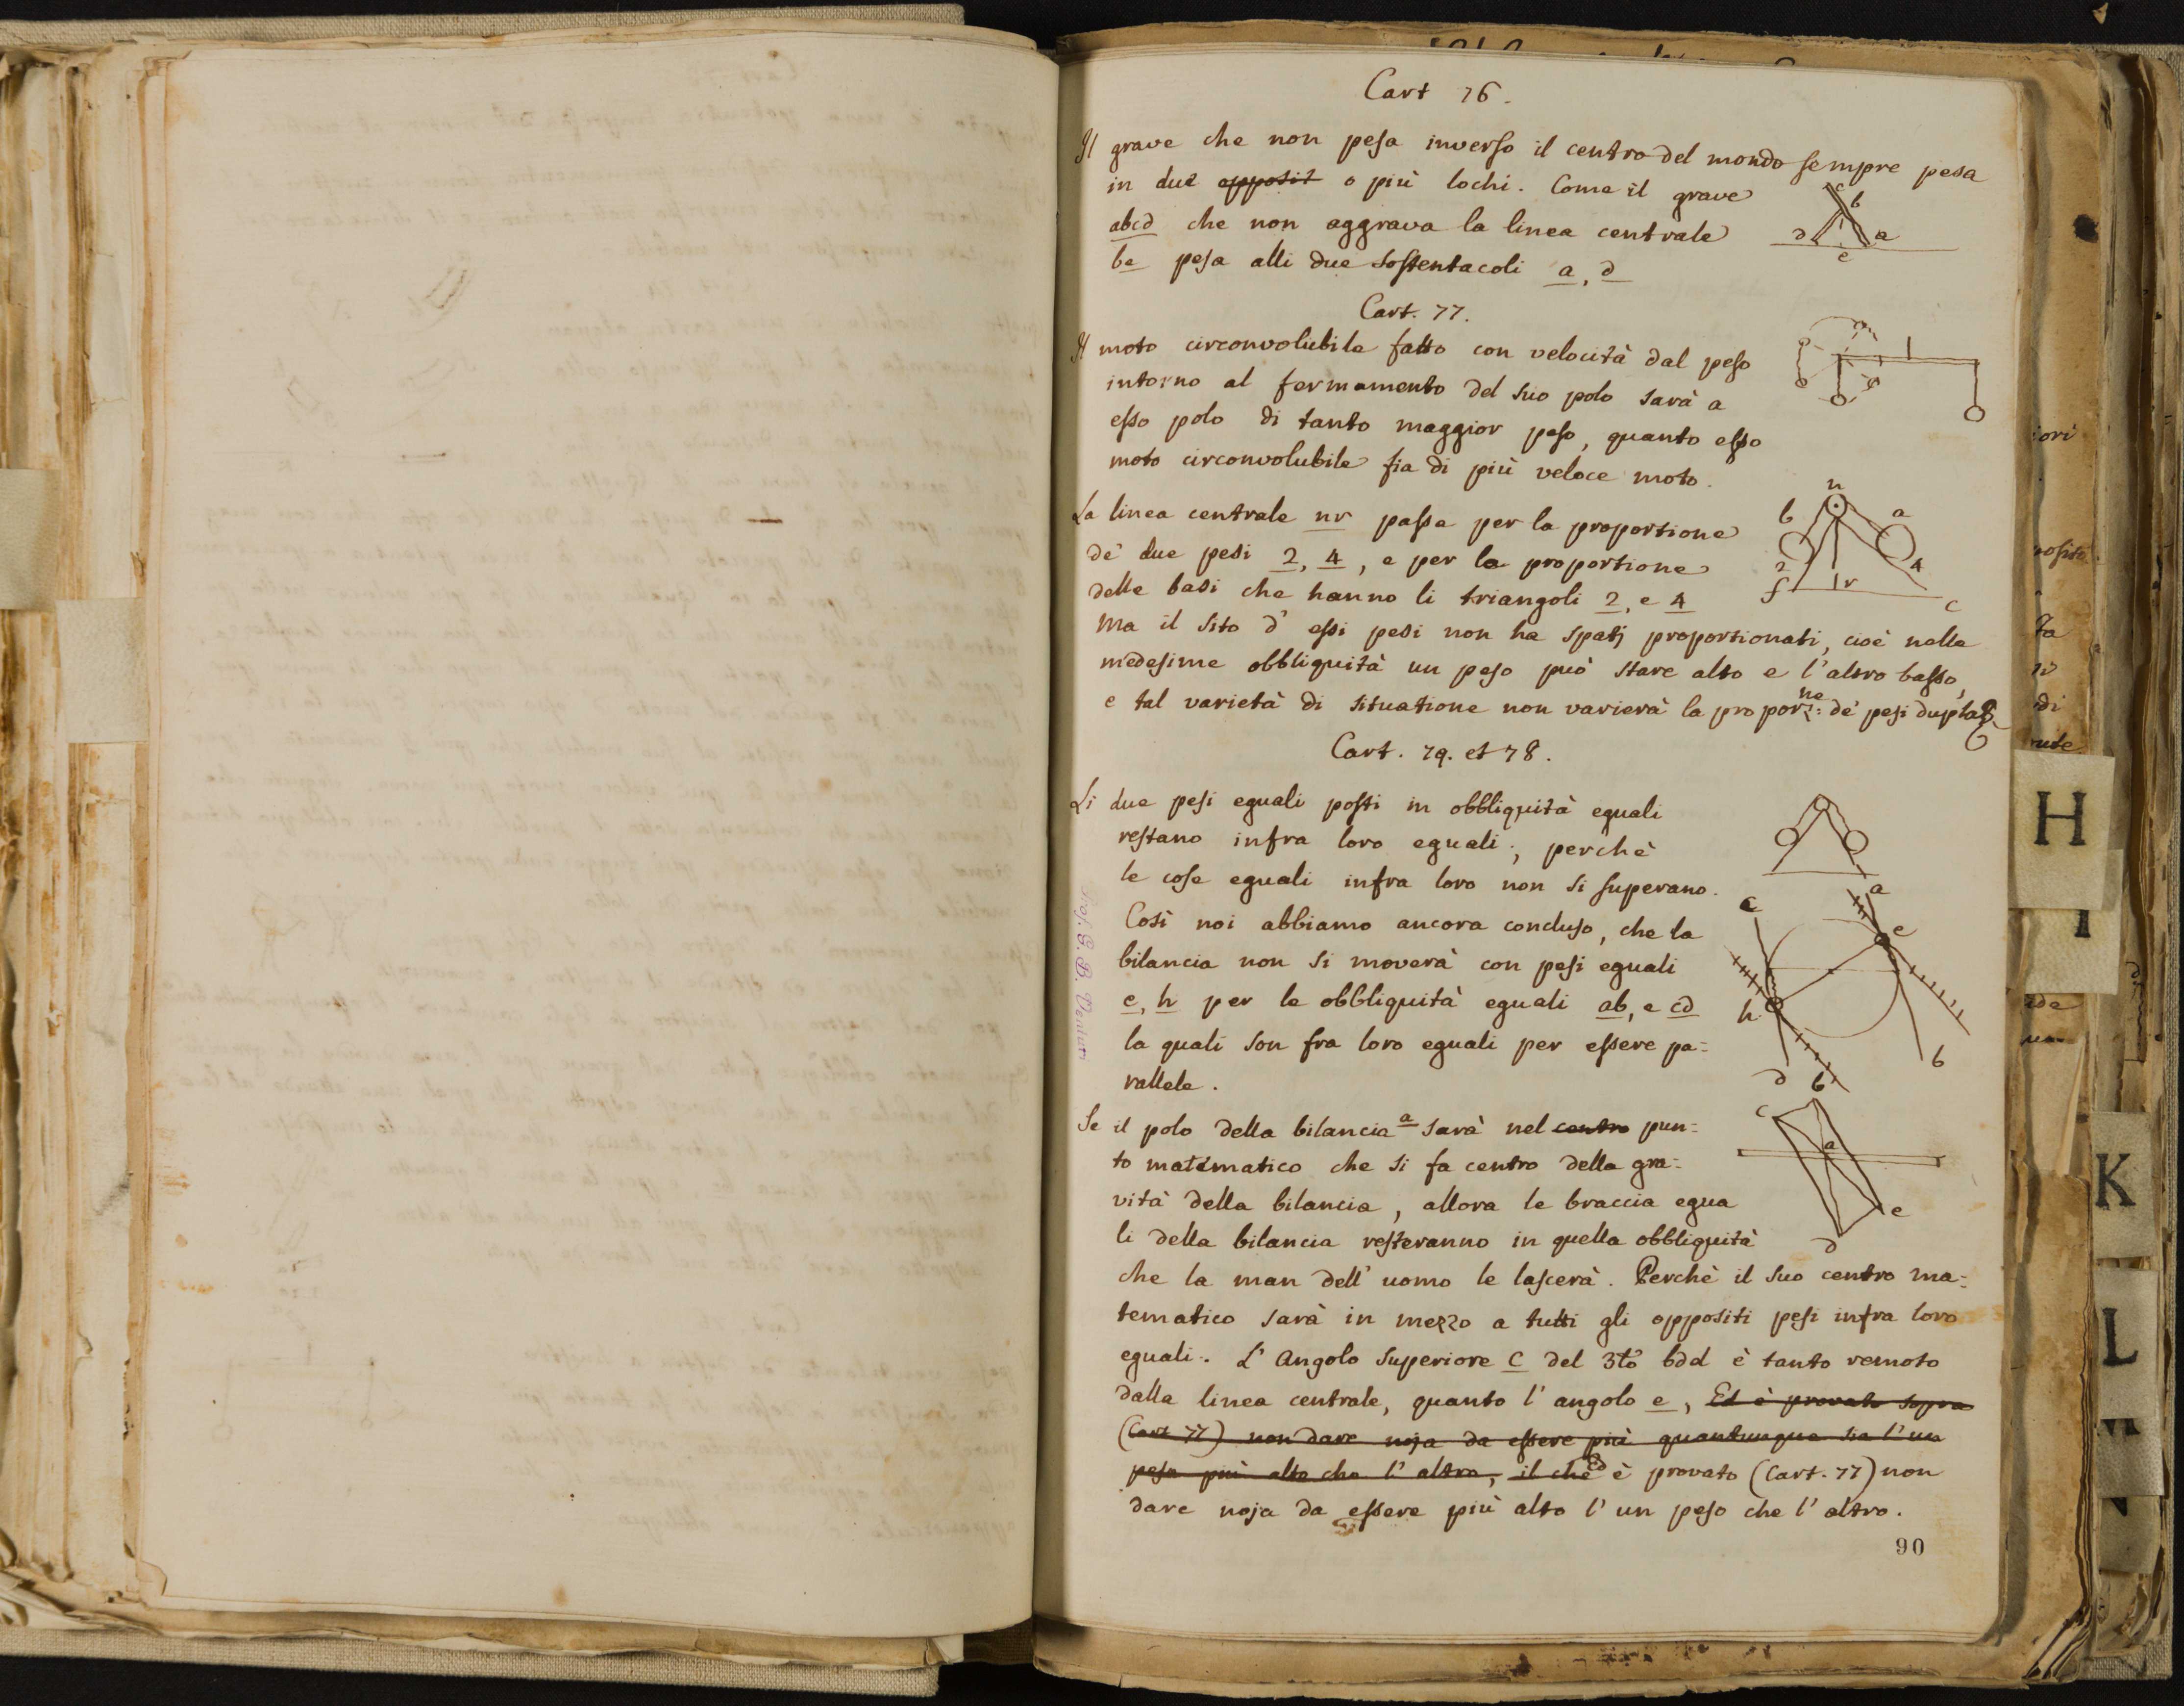 Cart 76.
Il grave che non pesa inverso il centro del mondo sempre pesa
in due opposit o più lochi. Come il grave
abcd che non aggrava la linea centrale
be pesa alli due sostentacoli a, d
c
b
d
a
e
Cart. 77.
Il moto circonvolubile fatto con velocità dal peso
intorno al fermamento del suo polo sarà a
esso polo di tanto maggior peso, quanto esso
moto circonvolubile fia di più veloce moto.
La linea centrale nr passa per la proportione
de' due pesi 2, 4, e per la proportione
delle basi che hanno li triangoli 2, e 4
Ma il sito d' essi pesi non ha spatj proportionati, cioè nelle
medesime obbliquità un peso può stare alto e l'altro basso,
e tal varietà di situatione non varierà la proporz:ne de' pesi
n
b
a
2
4
f
r
c
Cart. 79. et 78.
Li due pesi eguali posti in obbliquità eguali
restano infra loro eguali; perchè
le cose eguali infra loro non si superano.
Così noi abbiamo ancora concluso, che la
bilancia non si moverà con pesi eguali
e, h per le obbliquità eguali ab, e cd
le quali son fra loro eguali per essere pa=
rallele.
c
a
e
h
d
b
b
Se il polo della bilancia a sarà nel centro pun=
to matematico che si fa centro della gra=
vità della bilancia, allora le braccia egua
li della bilancia resteranno in quella obbliquità
che la man dell' uomo le lascerà. Perchè il suo centro ma=
tematico sarà in mezzo a tutti gli oppositi pesi infra loro
eguali. L' Angolo superiore c del 3to bdd è tanto remoto
dalla linea centrale, quanto l' angolo e, Ed è provato sopra
(Cart 77) non dare noja da essere più quantunque sia l'un
peso più alto che l' altro, il che ed è provato (Cart. 77) non
dare noja da essere più alto l' un peso che l' altro.
c
a
e
d
90
Prof. G. B. Venturi
H
I
K
L